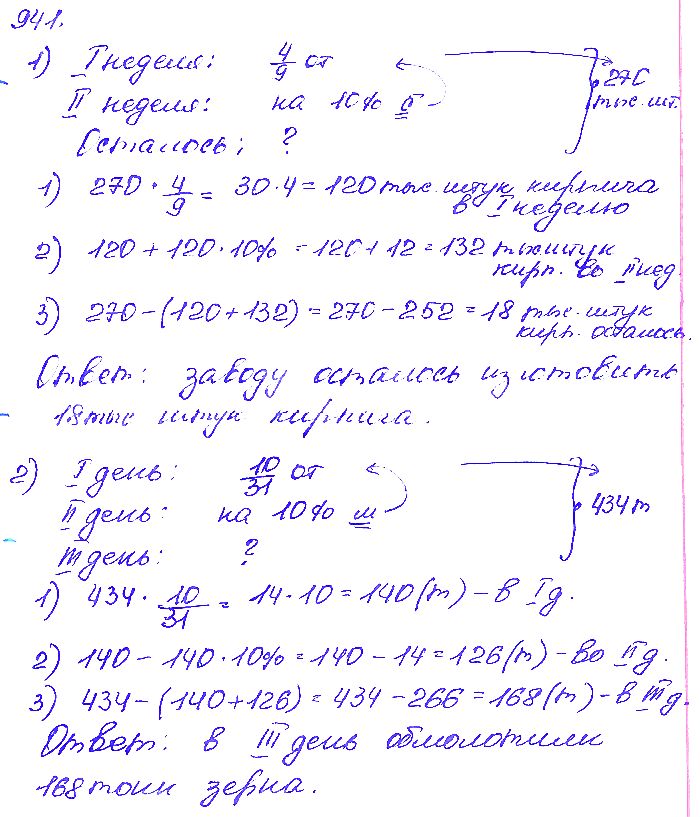 941.
1) I неделя: 4/9 от
II неделя: на 10% б
270 тыс. шт.
Осталось: ?
1) 270 · 4/9 = 30·4 = 120 тыс. штук кирпича
в I неделю
2) 120 + 120·10% = 120 + 12 = 132 тыс штук
кирп. во II нед.
3) 270 – (120+132) = 270 – 252 = 18 тыс. штук
кирп. осталось.
Ответ: заводу осталось изготовить
18 тыс штук кирпича.
2) I день: 10/31 от
II день: на 10% м
434 т
III день: ?
1) 434 · 10/31 = 14·10 = 140 (т) – в I д.
2) 140 – 140·10% = 140 – 14 = 126 (т) – во II д.
3) 434 – (140+126) = 434 – 266 = 168 (т) – в III д.
Ответ: в III день обмолотили
168 тонн зерна.